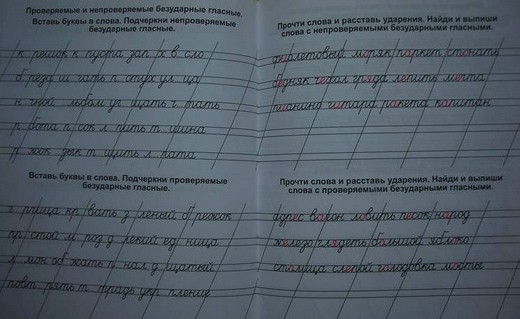 Проверяемые и непроверяемые безударные гласные.
Вставь буквы в слова. Подчеркни непроверяемые
безударные гласные.
к решок к пуста зап х в сло
б реза ш гать п стух ул ца
н чной льбом уг щать ч рать
р бота п сок л пить т шина
р жок зык т щить л рата
Вставь буквы в слова. Подчеркни проверяемые
безударные гласные.
кр вать з леный б режок
пр стой м роз д лекий ед ница
л мон об жать п нал д щатый
повт рять т традь укр пление
Прочти слова и расставь ударения. Найди и выпиши
слова с непроверяемыми безударными гласными.
фиолетовый моряк паркет стонать
бедняк чехол гряда лепить мечта
пианино гитара ракета капитан
Прочти слова и расставь ударения. Найди и выпиши
слова с проверяемыми безударными гласными.
адрес вагон ловить песок народ
железо глядеть большой яблоко
столица слепой голодовка мосты